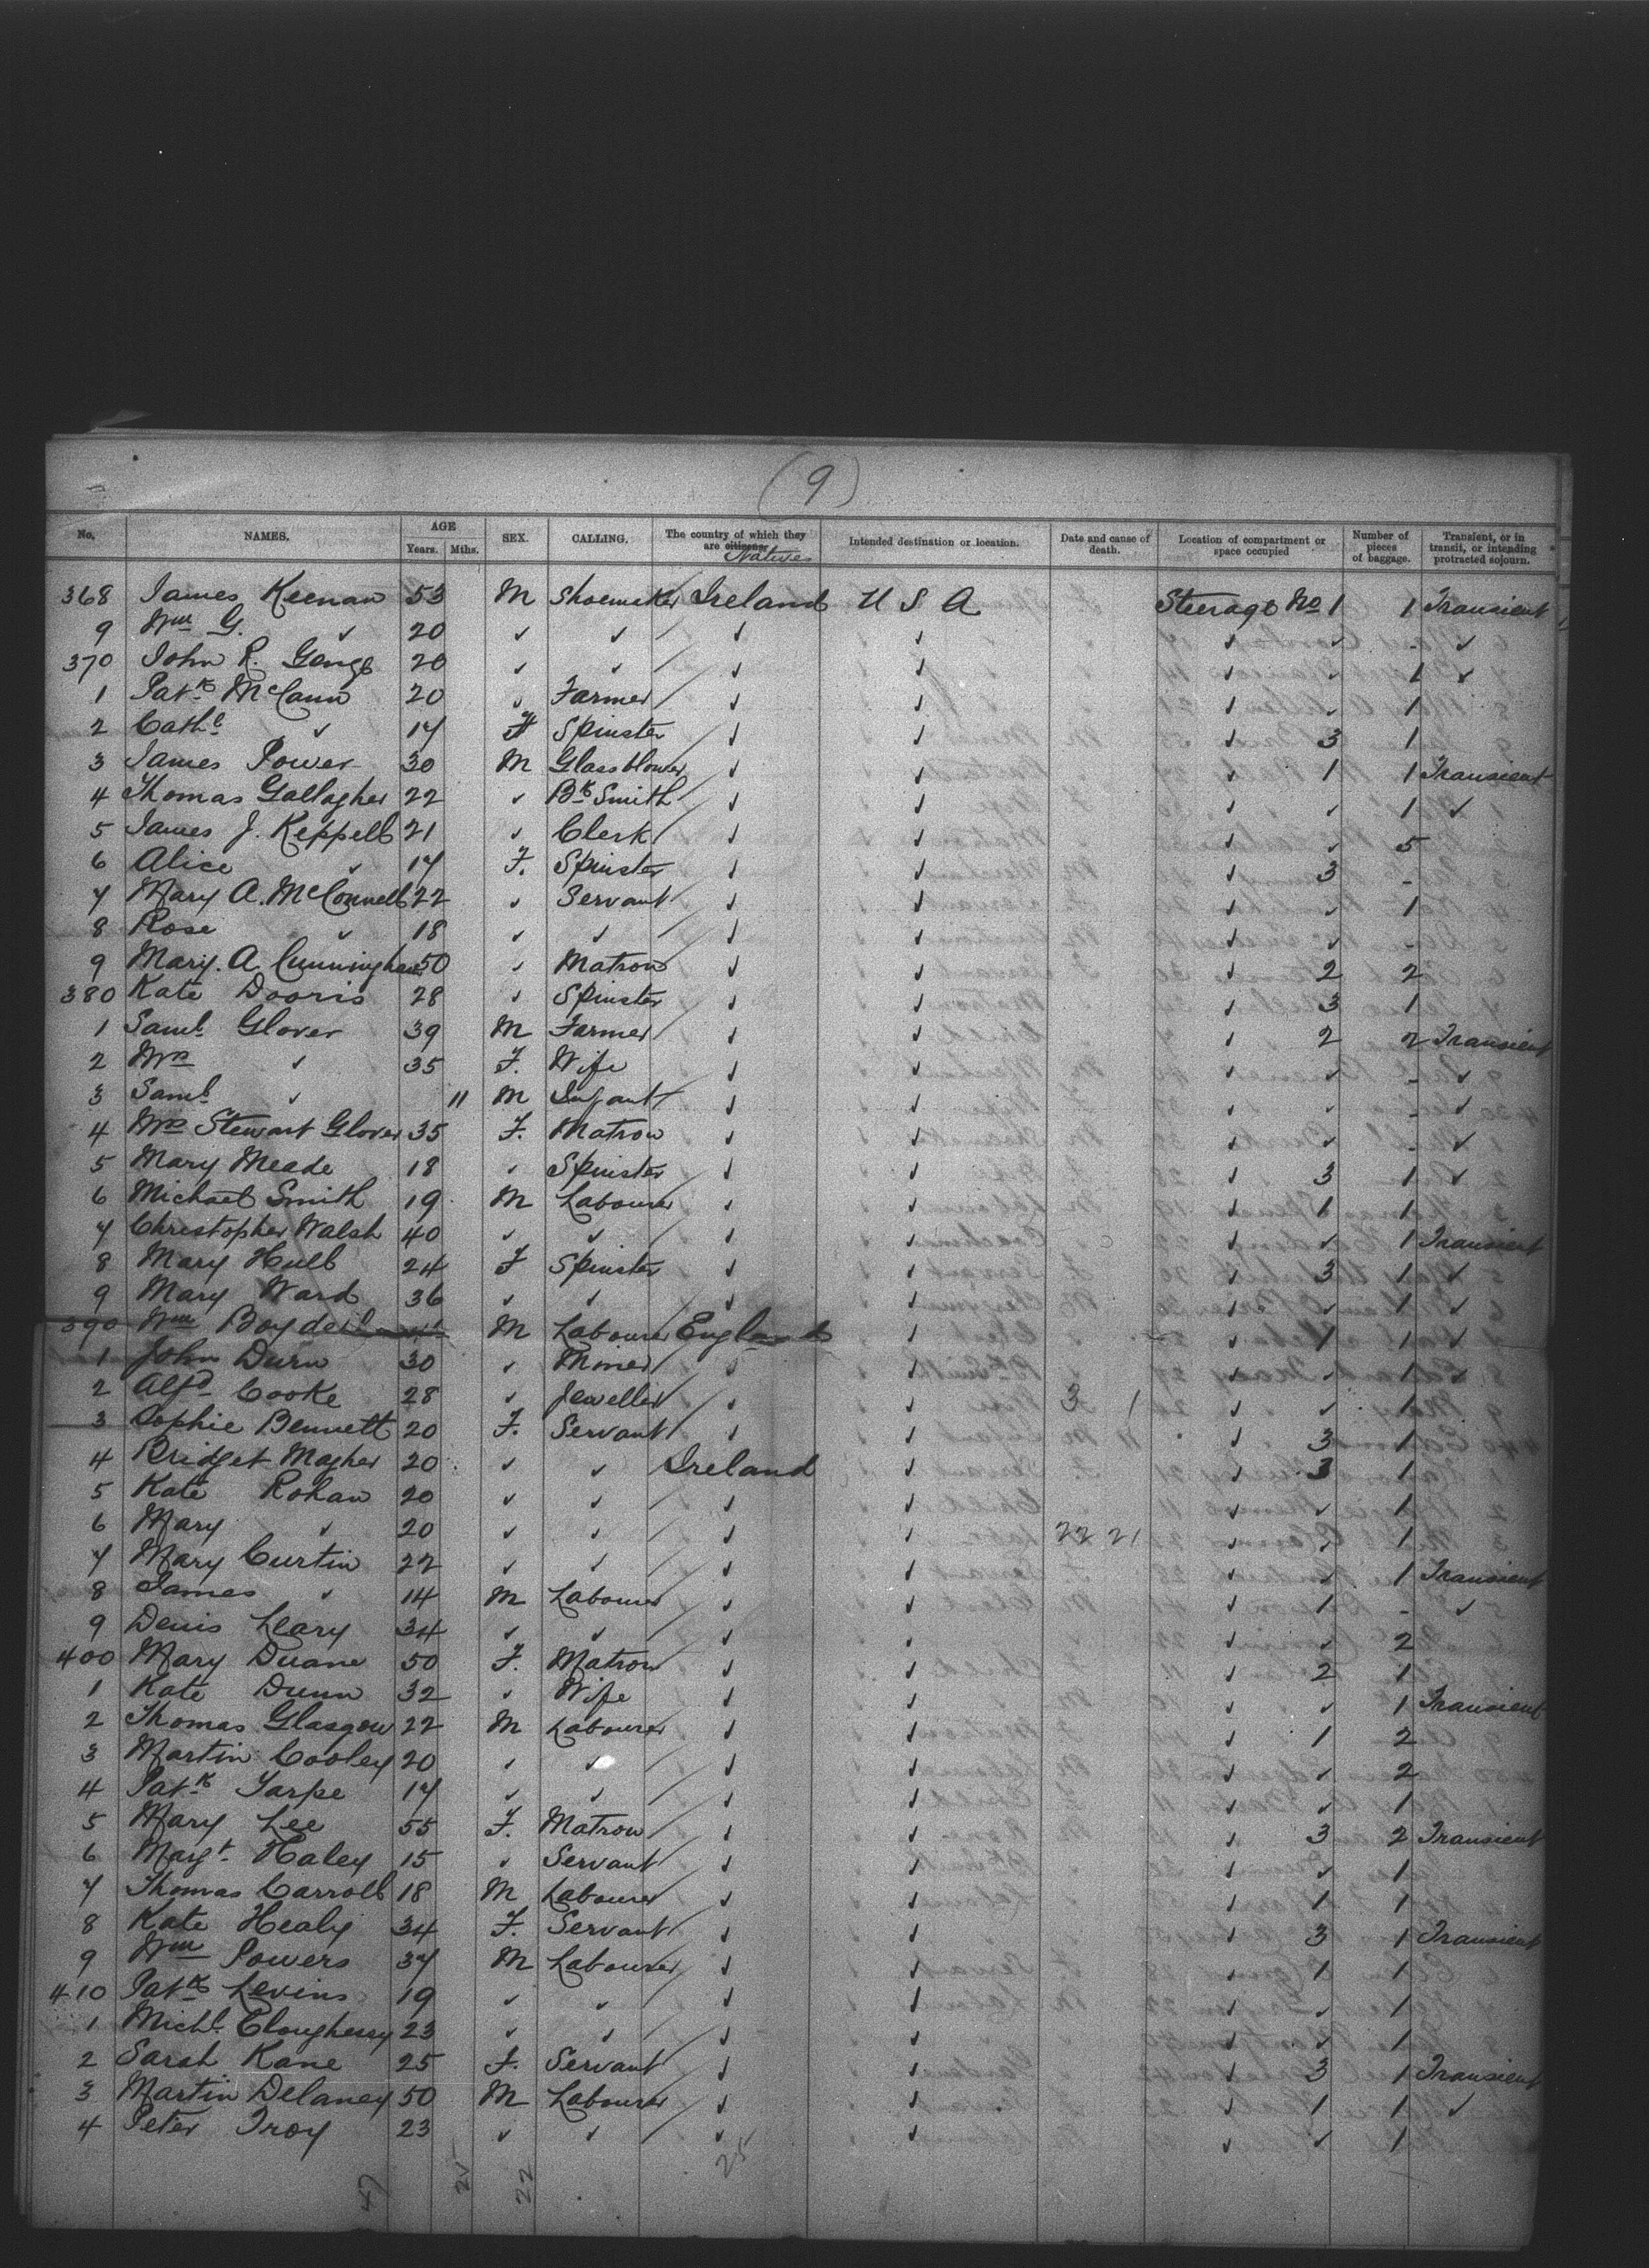 (9)
No. NAMES. AGE Years. Mths. SEX. CALLING. The country of which they are citizens Natives Intended destination or location. Date and cause of death. Location of compartment or space occupied Number of pieces of baggage. Transient, or in transit, or intending protracted sojourn.
368 James Keenan 53 M Shoemaker Ireland U S A Steerage No 1 1 Transient
9 Wm G. ✓ 20 ✓ ✓ ✓ ✓ ✓ ✓ - ✓
370 John R. 20 ✓ ✓ ✓ ✓ ✓ ✓ 1 ✓
1 Patk McCann 20 ✓ Farmer ✓ ✓ ✓ ✓ 1
2 Cathe ✓ 17 F Spinster ✓ ✓ ✓ 3 1
3 James Power 30 M Glassblower ✓ ✓ ✓ 1 1 Transient
4 Thomas Gallagher 22 ✓ Bk Smith ✓ ✓ ✓ ✓ 1 ✓
5 James J. Keppell 21 ✓ Clerk ✓ ✓ ✓ ✓ 5
6 Alice ✓ 17 F. Spinster ✓ ✓ ✓ 3 -
7 Mary A. McConnell 22 ✓ Servant ✓ ✓ ✓ ✓ 1
8 Rose ✓ 18 ✓ ✓ ✓ ✓ ✓ ✓ -
9 Mary. A. Cunningham 50 ✓ Matron ✓ ✓ ✓ 2 2
380 Kate Dooris 28 ✓ Spinster ✓ ✓ ✓ 3 1
1 Saml Glover 39 M Farmer ✓ ✓ ✓ 2 2 Transient
2 Mrs ✓ 35 F. Wife ✓ ✓ ✓ ✓ - ✓
3 Saml ✓ 11 M Infant ✓ ✓ ✓ ✓ - ✓
4 Mrs Stewart Glover 35 F. Matron ✓ ✓ ✓ ✓ - ✓
5 Mary Meade 18 ✓ Spinster ✓ ✓ ✓ 3 1 ✓
6 Michael Smith 19 M Labourer ✓ ✓ ✓ 1 1
7 Christopher Walsh 40 ✓ ✓ ✓ ✓ ✓ ✓ 1 Transient
8 Mary Hull 24 F Spinster ✓ ✓ ✓ 3 1 ✓
9 Mary Ward 36 ✓ ✓ ✓ ✓ ✓ ✓ 1 ✓
390 Wm Boydell M Labourer England ✓ 1 1 ✓
1 John Durn 30 ✓ Miner ✓ ✓ ✓ ✓ 1 ✓
2 Alfd Cooke 28 ✓ Jeweller ✓ ✓ 3 1 ✓ ✓ 1
3 Sophie Bennett 20 F. Servant ✓ ✓ ✓ 3 1
4 Bridget Magher 20 ✓ ✓ Ireland ✓ ✓ 3 1
5 Kate Rohan 20 ✓ ✓ ✓ ✓ ✓ ✓ 1
6 Mary ✓ 20 ✓ ✓ ✓ ✓ 22 21 ✓ ✓ 1
7 Mary Curtin 22 ✓ ✓ ✓ ✓ ✓ ✓ 1 Transient
8 James ✓ 14 M Labourer ✓ ✓ ✓ 1 - ✓
9 Denis Leary 34 ✓ ✓ ✓ ✓ ✓ ✓ 2
400 Mary Duane 50 F. Matron ✓ ✓ ✓ 2 1
1 Kate Dunn 32 ✓ Wife ✓ ✓ ✓ ✓ 1 Transient
2 Thomas Glasgow 22 M Labourer ✓ ✓ ✓ 1 2
3 Martin Cooley 20 ✓ ✓ ✓ ✓ ✓ ✓ 2
4 Patk Tarpe 17 ✓ ✓ ✓ ✓ ✓ ✓ 1
5 Mary Lee 55 F. Matron ✓ ✓ ✓ 3 2 Transient
6 Margt Haley 15 ✓ Servant ✓ ✓ ✓ ✓ 1
7 Thomas Carroll 18 M Labourer ✓ ✓ ✓ 1 1
8 Kate Healy 34 F. Servant ✓ ✓ ✓ 3 1 Transient
9 Wm Powers 37 M Labourer ✓ ✓ ✓ 1 1
410 Patk Levins 19 ✓ ✓ ✓ ✓ ✓ ✓ 1
1 Michl Clougherry 23 ✓ ✓ ✓ ✓ ✓ ✓ 1
2 Sarah Kane 25 F. Servant ✓ ✓ ✓ 3 1 Transient
3 Martin Delaney 50 M Labourer ✓ ✓ ✓ 1 1 ✓
4 Peter Troy 23 ✓ ✓ ✓ ✓ ✓ ✓ 1
47 25 22 25